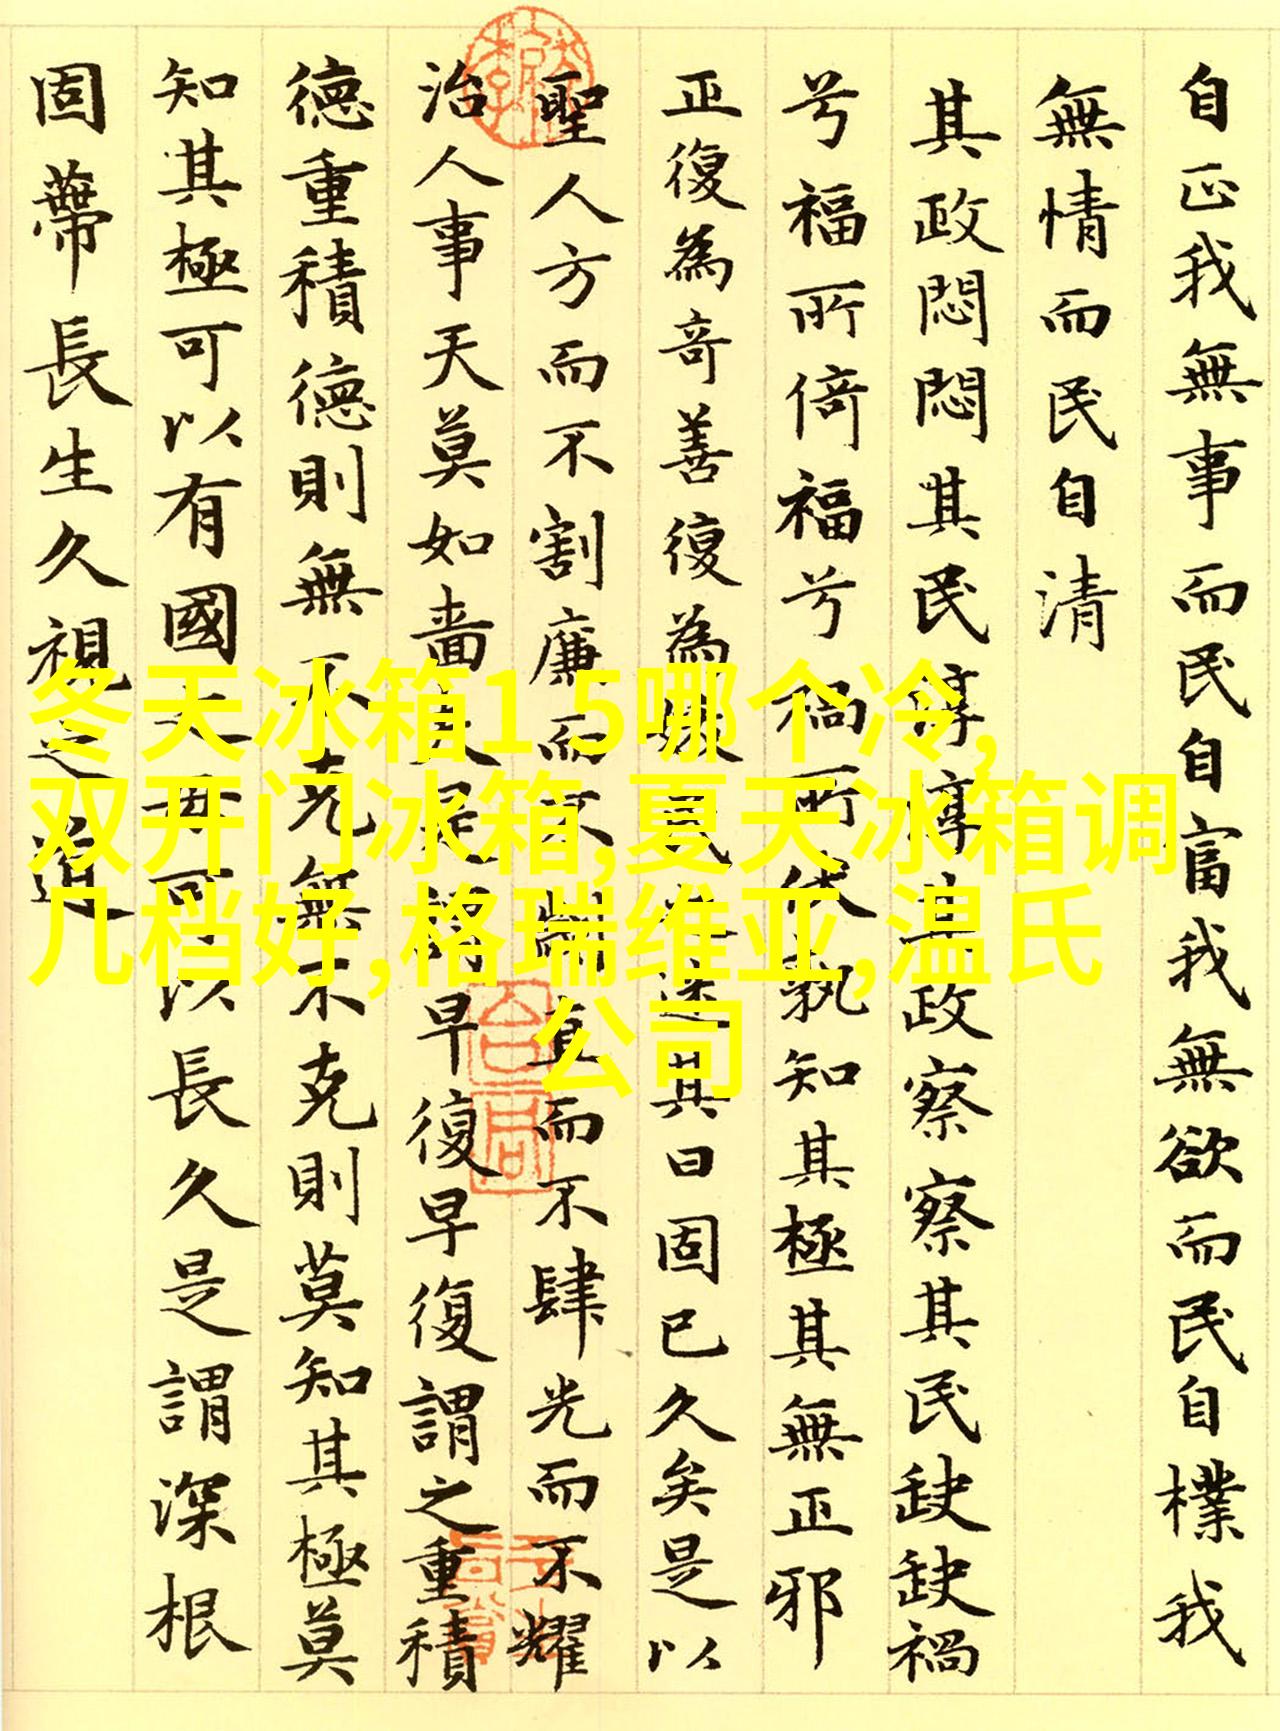 自正我無事而民自富我無欲而民自樸我
無情而民自清
其政悶悶其民淳淳其政察察其民缺缺禍
兮福所倚福兮禍所伏孰知其極其無正邪
正復為奇善復為民之迷其日固已久矣是以
聖人方而不割廉而不劌直而不肆光而不耀
治人事天莫如嗇夫是謂早復早復謂之重積
德重積德則無不克無不克則莫知其極莫
知其極可以有國之母可以長久是謂深根
固蔕長生久視之道
冬天冰箱1 5哪个冷,
双开门冰箱,夏天冰箱调
几档好,格瑞维亚,温氏
公司